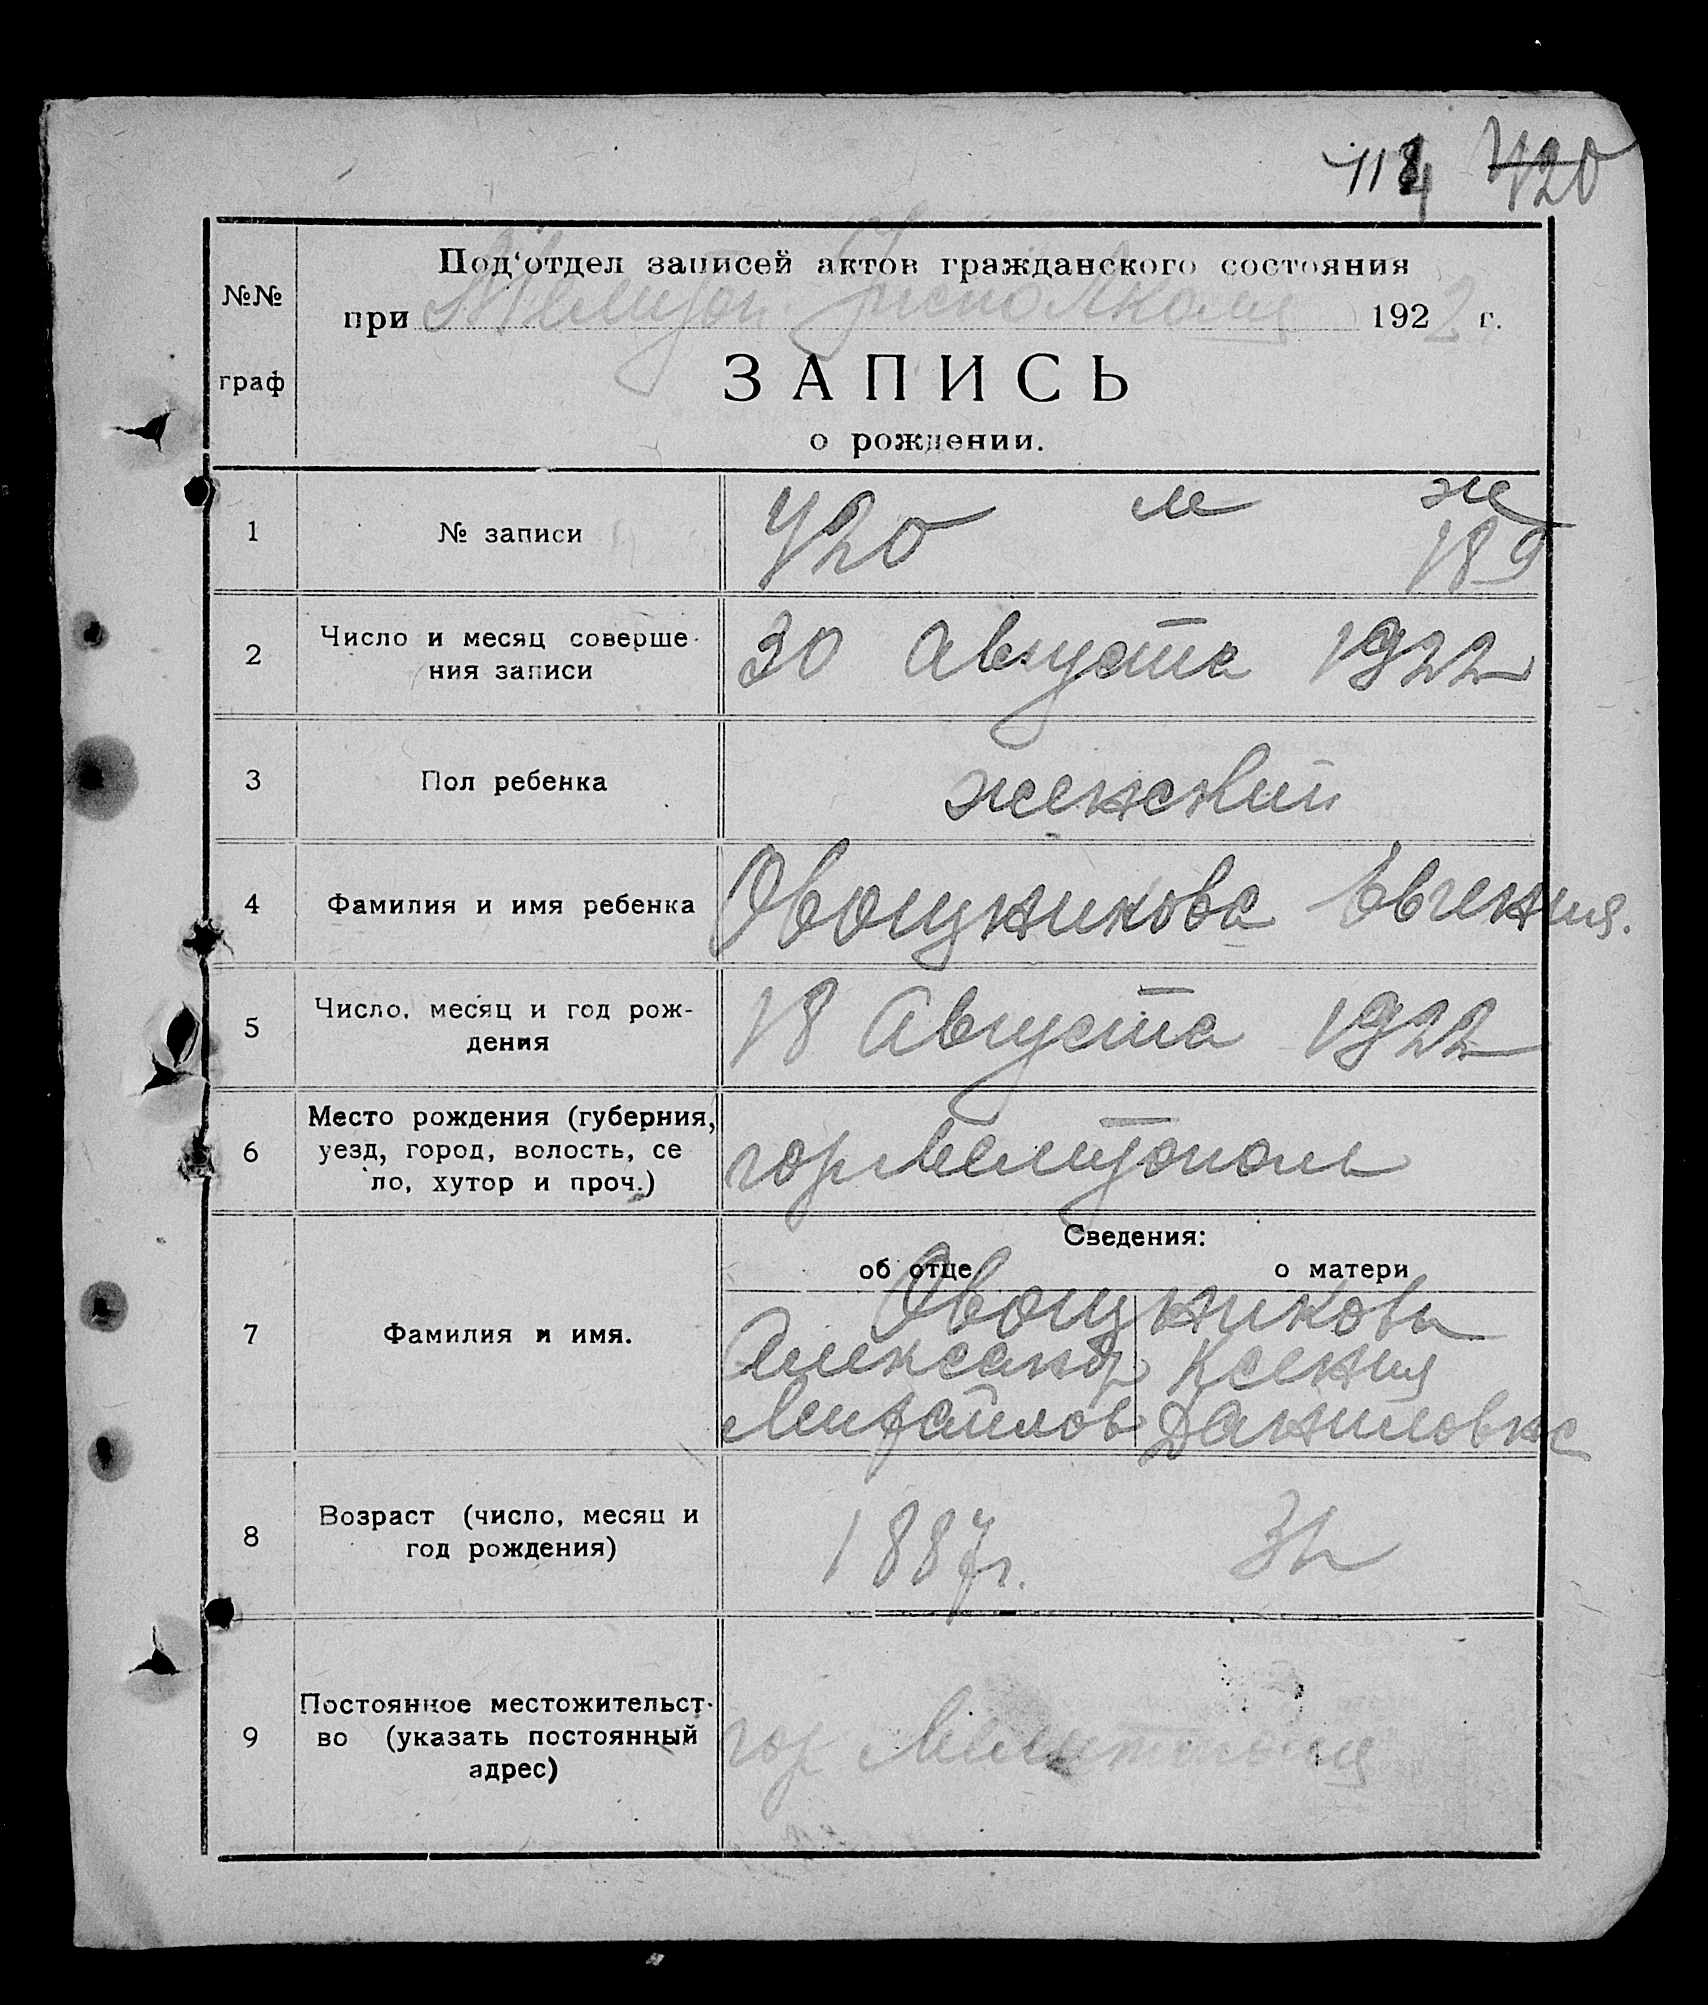 420
№№
граф
Под'отдел записей актов гражданского состояния
при Мелитоп. Исполкоме 1922 г.
ЗАПИСЬ
о рождении.
1 № записи 420 м ж
189
2 Число и месяц соверше-
ния записи 30 Августа 1922
3 Пол ребенка женский
4 Фамилия и имя ребенка Овощникова Евгения.
5 Число, месяц и год рож-
дения 18 Августа 1922
6 Место рождения (губерния,
уезд, город, волость, се
ло, хутор и проч.) гор Мелитополь
Сведения:
об отце о матери
Овощниковы
7 Фамилия и имя. Александр Ксения
Михайлов Даниловна
8 Возраст (число, месяц и
год рождения) 1887г.
9 Постоянное местожительст-
во (указать постоянный
адрес) гор Мелитополь